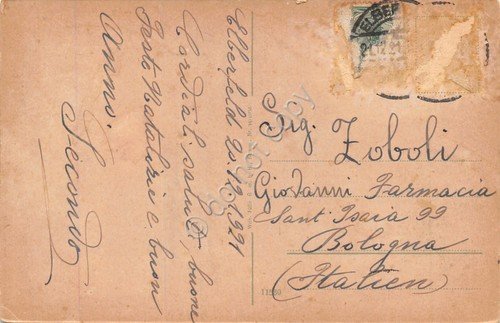 Elberfeld 20.12.1921
Cordiali saluti, buone
Feste Natalizie e buon
Anno.
Secondo
Sig. Zoboli
Giovanni Farmacia
Sant Isaia 99
Bologna
(Italien)
11580
ELBERF